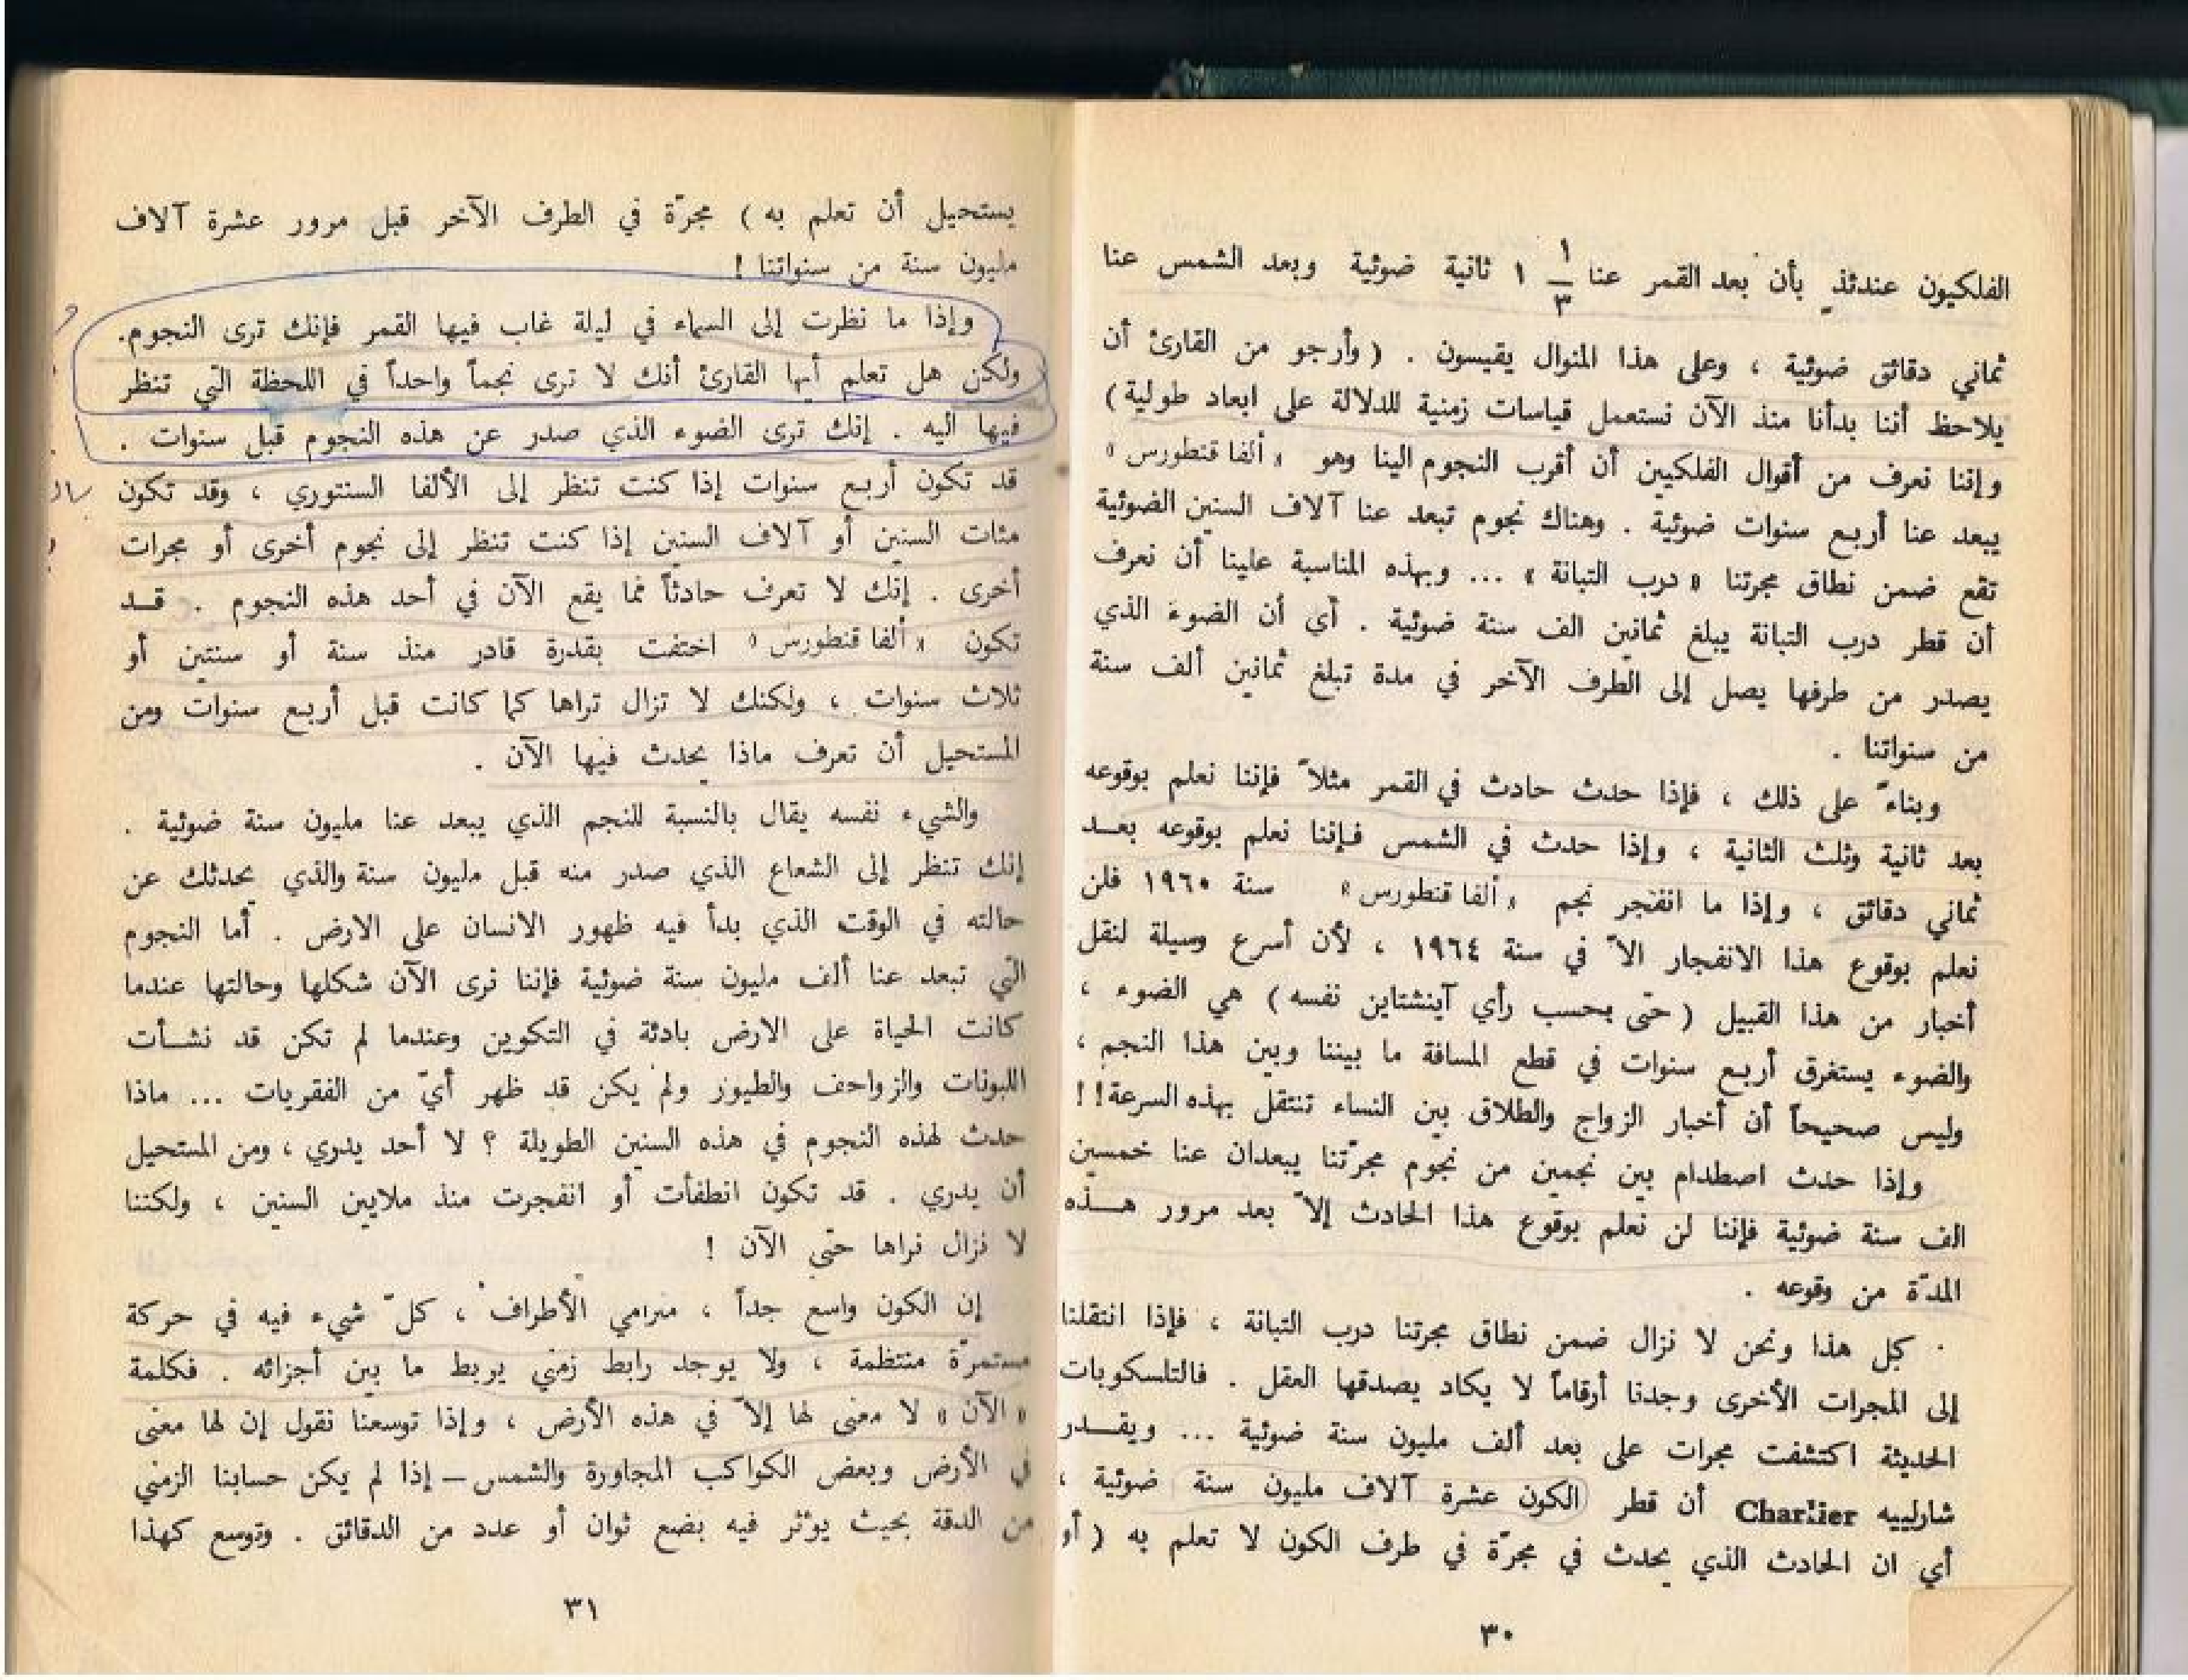 الفلكيون عندئذ بأن بعد القمر عنا ١ ١/٣ ثانية ضوئية وبعد الشمس عنا
ثماني دقائق ضوئية ، وعلى هذا المنوال يقيسون . ( وأرجو من القارئ أن
يلاحظ أننا بدأنا منذ الآن نستعمل قياسات زمنية للدلالة على ابعاد طولية )
وإننا نعرف من أقوال الفلكيين أن أقرب النجوم الينا وهو « ألفا قنطورس »
يبعد عنا أربع سنوات ضوئية . وهناك نجوم تبعد عنا آلاف السنين الضوئية
تقع ضمن نطاق مجرتنا « درب التبانة » ... وبهذه المناسبة علينا أن نعرف
أن قطر درب التبانة يبلغ ثمانين الف سنة ضوئية . أي أن الضوء الذي
يصدر من طرفها يصل إلى الطرف الآخر في مدة تبلغ ثمانين ألف سنة
من سنواتنا .
وبناءً على ذلك ، فإذا حدث حادث في القمر مثلاً فإننا نعلم بوقوعه
بعد ثانية وثلث الثانية ، وإذا حدث في الشمس فإننا نعلم بوقوعه بعد
ثماني دقائق ، وإذا ما انفجر نجم « ألفا قنطورس » سنة ١٩٦٠ فلن
نعلم بوقوع هذا الانفجار الاّ في سنة ١٩٦٤ ، لأن أسرع وسيلة لنقل
أخبار من هذا القبيل ( حتى بحسب رأي آينشتاين نفسه ) هي الضوء ،
والضوء يستغرق أربع سنوات في قطع المسافة ما بيننا وبين هذا النجم ،
وليس صحيحاً أن أخبار الزواج والطلاق بين النساء تنتقل بهذه السرعة!!
وإذا حدث اصطدام بين نجمين من نجوم مجرّتنا يبعدان عنا خمسين
الف سنة ضوئية فإننا لن نعلم بوقوع هذا الحادث إلاّ بعد مرور هذه
المدّة من وقوعه .
كل هذا ونحن لا نزال ضمن نطاق مجرتنا درب التبانة ، فإذا انتقلنا
إلى المجرات الأخرى وجدنا أرقاماً لا يكاد يصدقها العقل . فالتلسكوبات
الحديثة اكتشفت مجرات على بعد ألف مليون سنة ضوئية ... ويقدر
شارلييه Charlier أن قطر الكون عشرة آلاف مليون سنة ضوئية ،
أي ان الحادث الذي يحدث في مجرّة في طرف الكون لا تعلم به ( أو
٣٠
يستحيل أن تعلم به ) مجرّة في الطرف الآخر قبل مرور عشرة آلاف
مليون سنة من سنواتنا !
وإذا ما نظرت إلى السماء في ليلة غاب فيها القمر فإنك ترى النجوم.
ولكن هل تعلم أيها القارئ أنك لا ترى نجماً واحداً في اللحظة التي تنظر
فيها اليه . إنك ترى الضوء الذي صدر عن هذه النجوم قبل سنوات .
قد تكون أربع سنوات إذا كنت تنظر إلى الألفا السنتوري ، وقد تكون
مئات السنين أو آلاف السنين إذا كنت تنظر إلى نجوم أخرى أو مجرات
أخرى . إنك لا تعرف حادثاً مما يقع الآن في أحد هذه النجوم . قد
تكون « ألفا قنطورس » اختفت بقدرة قادر منذ سنة أو سنتين أو
ثلاث سنوات ، ولكنك لا تزال تراها كما كانت قبل أربع سنوات ومن
المستحيل أن تعرف ماذا يحدث فيها الآن .
والشيء نفسه يقال بالنسبة للنجم الذي يبعد عنا مليون سنة ضوئية .
إنك تنظر إلى الشعاع الذي صدر منه قبل مليون سنة والذي يحدثك عن
حالته في الوقت الذي بدأ فيه ظهور الانسان على الارض . أما النجوم
التي تبعد عنا ألف مليون سنة ضوئية فإننا نرى الآن شكلها وحالتها عندما
كانت الحياة على الارض بادئة في التكوين وعندما لم تكن قد نشأت
اللبونات والزواحف والطيور ولم يكن قد ظهر أيّ من الفقريات ... ماذا
حدث لهذه النجوم في هذه السنين الطويلة ؟ لا أحد يدري ، ومن المستحيل
أن يدري . قد تكون انطفأت أو انفجرت منذ ملايين السنين ، ولكننا
لا نزال نراها حتى الآن !
إن الكون واسع جداً ، مترامي الأطراف ، كلّ شيء فيه في حركة
مستمرّة منتظمة ، ولا يوجد رابط زمني يربط ما بين أجزائه . فكلمة
« الآن » لا معنى لها إلاّ في هذه الأرض ، وإذا توسعنا نقول إن لها معنى
في الأرض وبعض الكواكب المجاورة والشمس – إذا لم يكن حسابنا الزمني
من الدقة بحيث يؤثر فيه بضع ثوان أو عدد من الدقائق . وتوسع كهذا
٣١